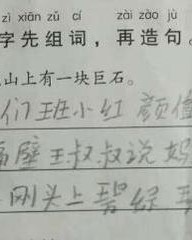 zì xiān zǔ cí    zài zào jù
字先组词，再造句。
山上有一块巨石。
们班小红 颜值
隔壁王叔叔说妈
刚头上碧绿